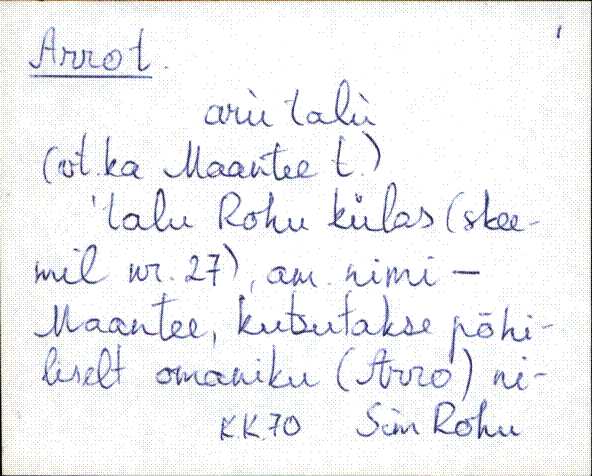 Arro t.
arù talù
(vt. ka Maantee t.)
'talu Rohu külas (skee-
mil nr. 27), am. nimi —
Maantee, kutsutakse põhi-
liselt omaniku (Arro) ni-
K.K.70 Sim Rohu